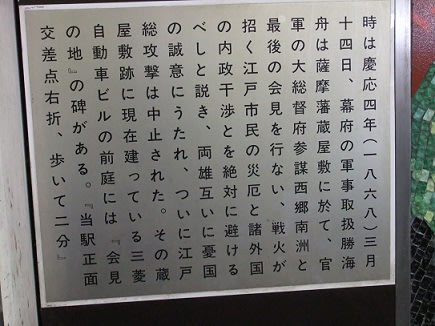 時は慶応四年(一八六八)三月
十四日、幕府の軍事取扱勝海
舟は薩摩藩蔵屋敷に於て、官
軍の大総督府参謀西郷南洲と
最後の会見を行ない、戦火が
招く江戸市民の災厄と諸外国
の内政干渉とを絶対に避ける
べしと説き、両雄互いに憂国
の誠意にうたれ、ついに江戸
総攻撃は中止された。その蔵
屋敷跡に現在建っている三菱
自動車ビルの前庭には『会見
の地』の碑がある。『当駅正面
交差点右折、歩いて二分』